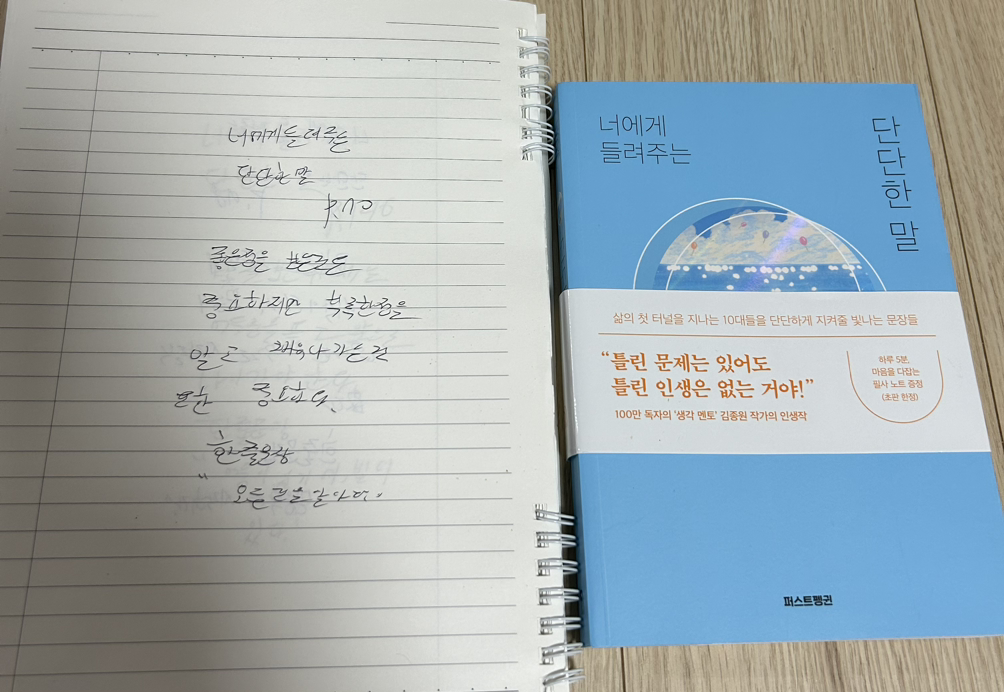 너에게 들려주는
단단한 말
좋은점을
중요하지만 부족한점을
알고 채워나가는건
또한 중요하다.
한줄요약
너에게
들려주는
단단한 말
삶의 첫 터널을 지나는 10대들을 단단하게 지켜줄 빛나는 문장들
“틀린 문제는 있어도
틀린 인생은 없는 거야!”
100만 독자의 '생각 멘토' 김종원 작가의 인생작
하루 5분,
마음을 다잡는
필사 노트 증정
(초판 한정)
퍼스트펭귄